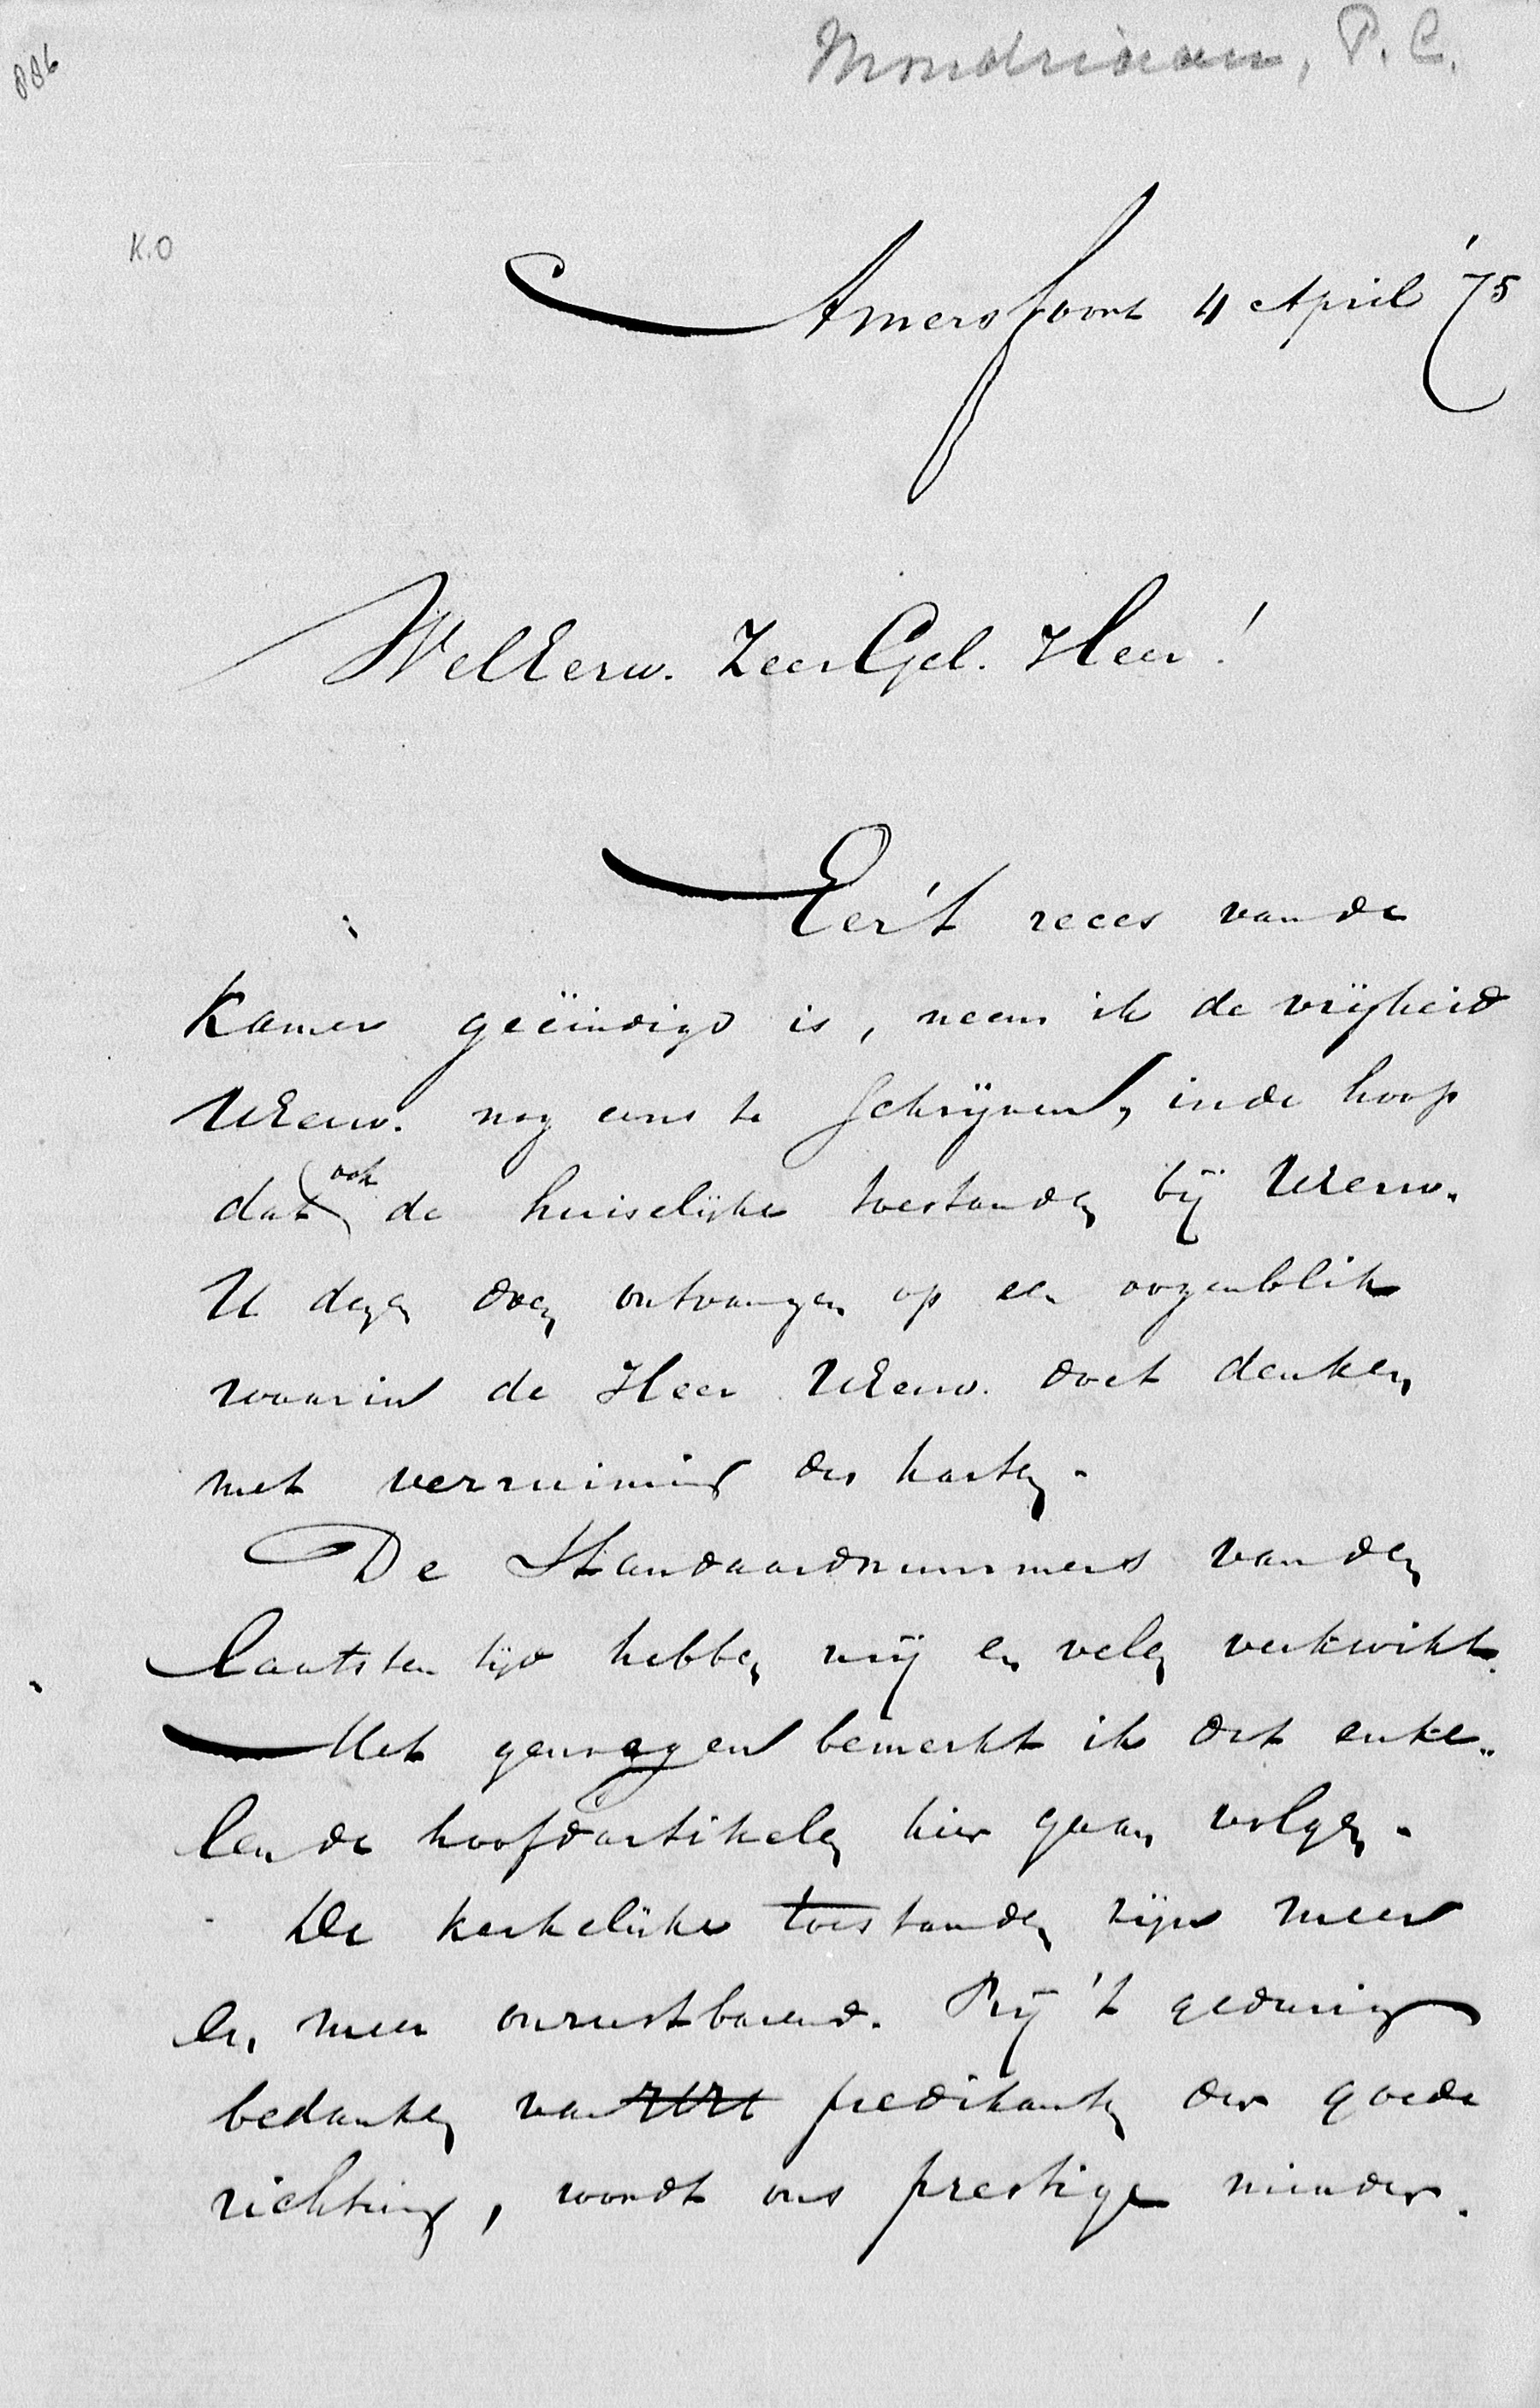 886
Mondriaan, P.C.
K.O
Amersfoort 4 April '75
WelEerw. ZeerGel. Heer!
Eer 't reces van de
Kamer geëindigd is, neem ik de vrijheid
UEerw. nog eens te schrijven, in de hoop
dat ook de huiselijke toestanden bij UEerw.
U dezen doen ontvangen op een oogenblik
waarin de Heer UEerw. doet denken
met verruiming des harten.
De Standaardnummers van den
laatsten tijd hebben mij en velen verkwikt.
Met genoegen bemerkt ik dat enke„
len de hoofdartikelen hier gaan volgen.
De kerkelijke toestanden zijn meer
en meer onrustbarend. Bij 't gedurig
bedanken van predikanten der goede
richting, wordt ons prestige minder.